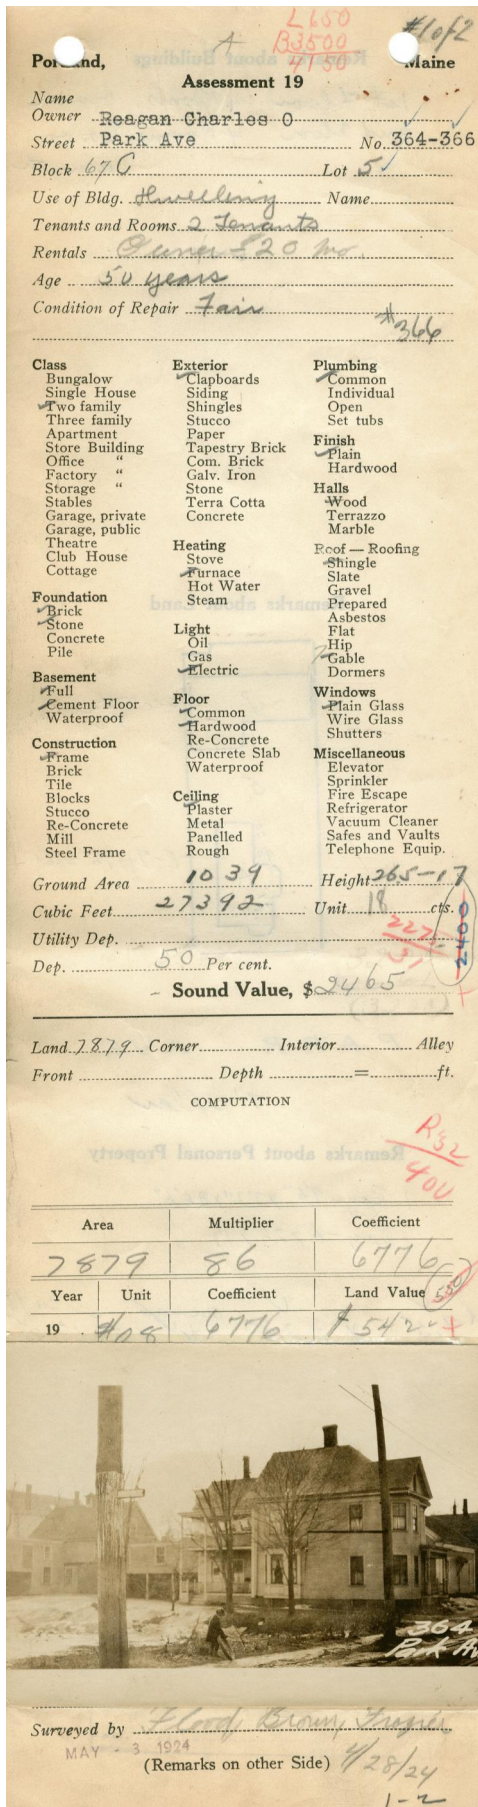 L 650
#1 of 2
A
B 3500
4150
Portland, Maine
Assessment 19
Name
Owner Reagan Charles O
Street Park Ave No. 364-366
Block 67 C Lot 5
Use of Bldg. Dwelling Name
Tenants and Rooms 2 Tenants
Rentals Owner - $20 mo.
Age 50 years
Condition of Repair Fair
#366
Class
Bungalow
Single House
Two family
Three family
Apartment
Store Building
Office "
Factory "
Storage "
Stables
Garage, private
Garage, public
Theatre
Club House
Cottage
Foundation
Brick
Stone
Concrete
Pile
Basement
Full
Cement Floor
Waterproof
Construction
Frame
Brick
Tile
Blocks
Stucco
Re-Concrete
Mill
Steel Frame
Exterior
Clapboards
Siding
Shingles
Stucco
Paper
Tapestry Brick
Com. Brick
Galv. Iron
Stone
Terra Cotta
Concrete
Heating
Stove
Furnace
Hot Water
Steam
Light
Oil
Gas
Electric
Floor
Common
Hardwood
Re-Concrete
Concrete Slab
Waterproof
Ceiling
Plaster
Metal
Panelled
Rough
Plumbing
Common
Individual
Open
Set tubs
Finish
Plain
Hardwood
Halls
Wood
Terrazzo
Marble
Roof — Roofing
Shingle
Slate
Gravel
Prepared
Asbestos
Flat
Hip
Gable
Dormers
Windows
Plain Glass
Wire Glass
Shutters
Miscellaneous
Elevator
Sprinkler
Fire Escape
Refrigerator
Vacuum Cleaner
Safes and Vaults
Telephone Equip.
Ground Area 1039 Height 26.5-17
Cubic Feet 27392 Unit 18 cts.
2400
Utility Dep.
Dep. 50 Per cent.
Sound Value, $2465
Land 7879 Corner Interior Alley
Front Depth = ft.
COMPUTATION
R32
400
Area Multiplier Coefficient
7879 86 6776
Year Unit Coefficient Land Value 550
19 #08 6776 $542
364
Park Av
Surveyed by Flood, Brown, Frazier
MAY - 3 1924
(Remarks on other Side) 4/28/24
1-2